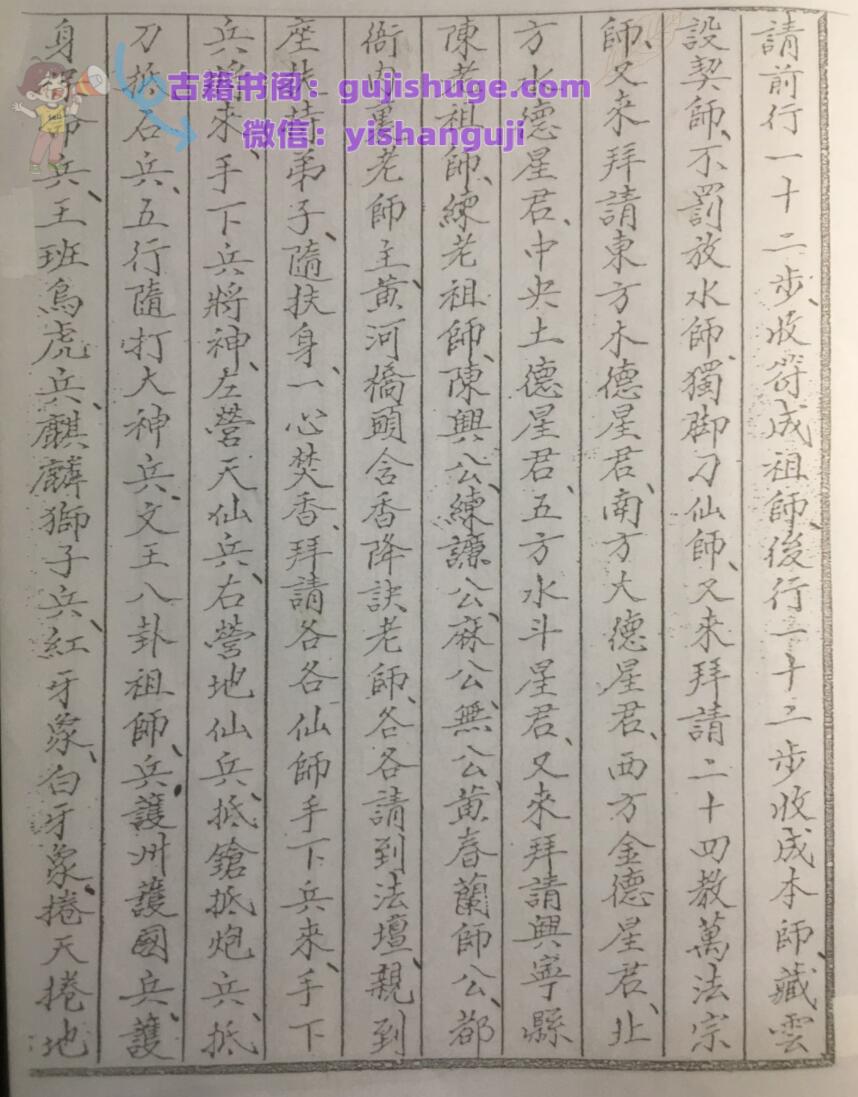 請前行一十二步、收符成祖師、後行二十二步收成本師、藏雲
設契師、不罰放水師、獨脚刀仙師、又来拜請二十四教萬法宗
師、又来拜請東方木德星君、南方大德星君、西方金德星君、北
方水德星君、中央土德星君、五方水斗星君、又來拜請興寧縣
陳老祖師、練老祖師、陳興公、練譚公、蔴公無公、黄春蘭師公、都
衙内裏老師主、黄河橋頭含香降訣老師、各各請到法壇、親到
座扶持弟子、隨扶身、一心焚香、拜請各各仙師手下兵来、手下
兵將來、手下兵將神、左營天仙兵、右營地仙兵、抵鎗抵炮兵、抵
刀抵石兵、五行隨打大神兵、文王八卦祖師、兵護州護國兵、護
身 兵、王班鳥虎兵、麒麟獅子兵、紅牙象、白牙象、捲天捲地
古籍书阁：gujishuge.com
微信：yishanguji